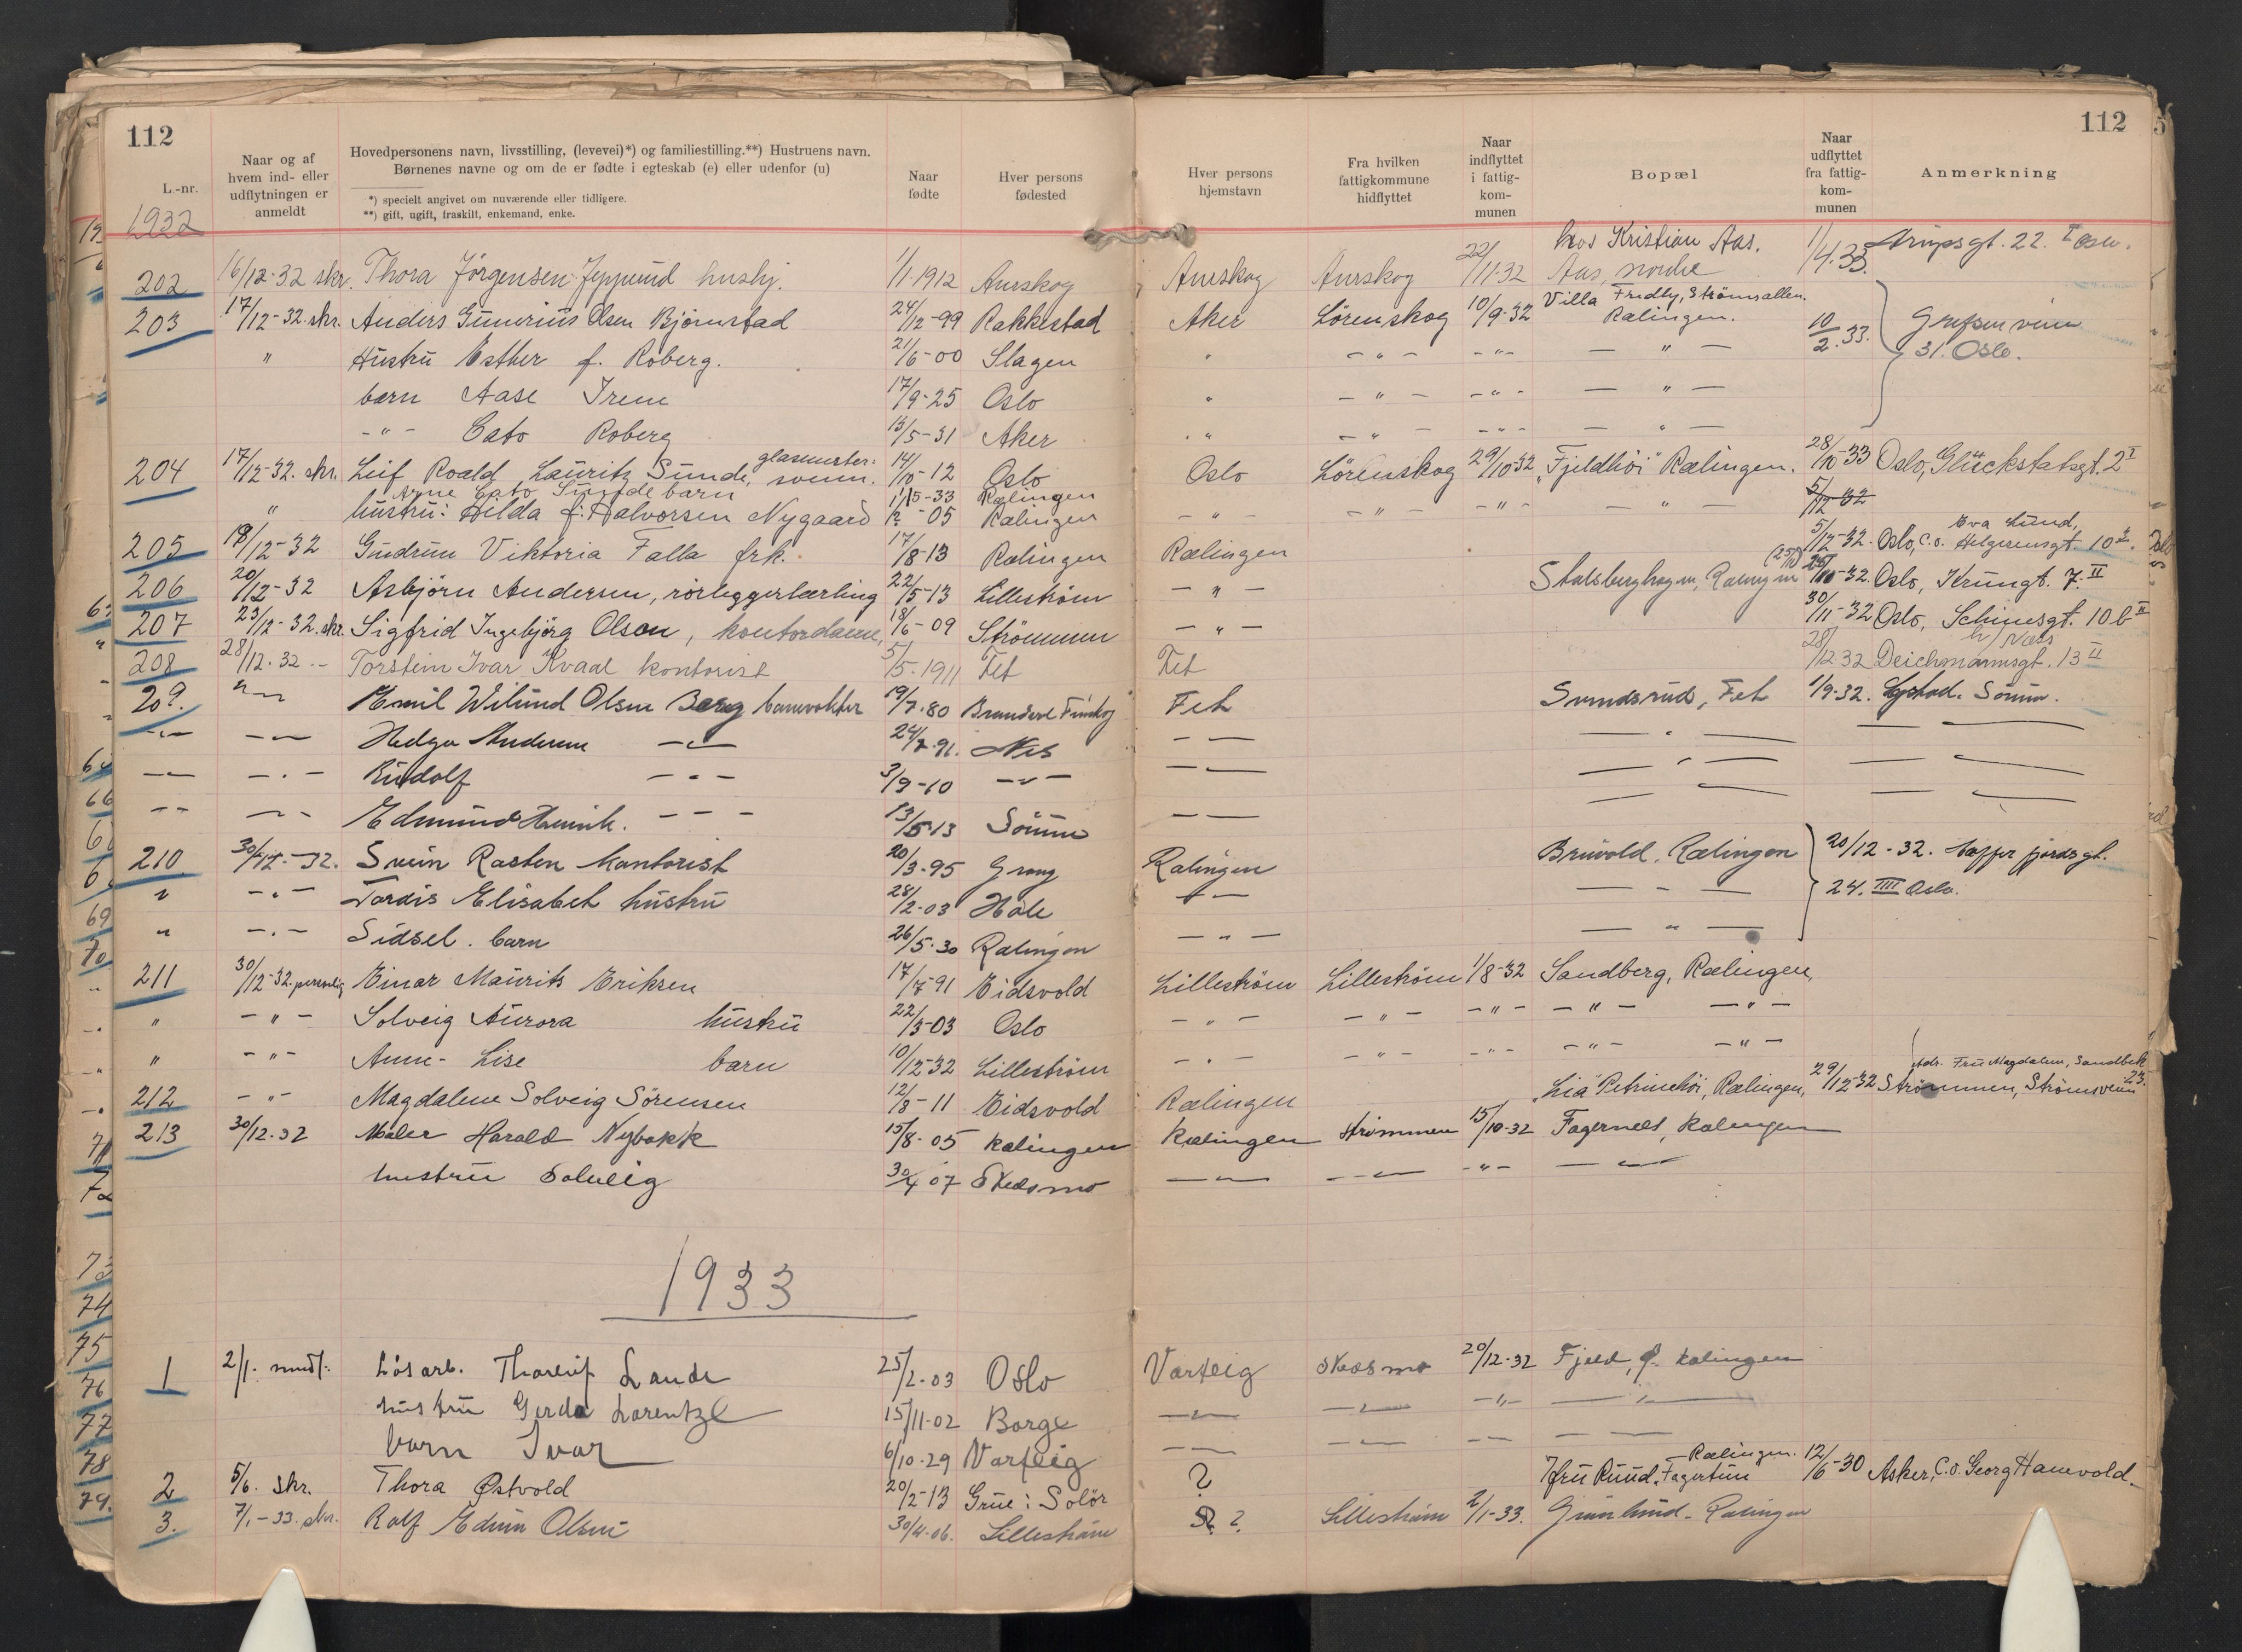 112
112
L.-nr.
Naar og af hvem ind- eller udflytningen er anmeldt
Hovedpersonens navn, livsstilling, (levevei)*) og familiestilling.**) Hustruens navn.
Børnenes navne og om de er fødte i egteskab (e) eller udenfor (u)
*) specielt angivet om nuværende eller tidligere.
**) gift, ugift, fraskilt, enkemand, enke.
Naar fødte
Hver persons fødested
Hver persons hjemstavn
Fra hvilken fattigkommune hidflyttet
Naar indflyttet i fattig-kom-munen
Bopæl
Naar udflyttet fra fattig-kom-munen
Anmerkning
1932
202 16/12-32 skr. Thora Jørgensen husbj. 1/1.1912 Aurskog Aurskog Aurskog 22/11-32 hos Kristian Aas. Aas, nordre 1/4.33. gt. 22. I Oslo.
203 17/12-32. skr. Anders Gunerius Olsen Bjørnstad 24/12-99 Rakkestad Aker Lørenskog 10/9-32 Villa Fredly, Strømsalleen. Rælingen. 10/2.33. Grefsen veien 31. Oslo.
" Hustru Esther f. Roberg. 21/6-00 Slagen " - " - - " - — " —
barn Aase Irene 17/9-25 Oslo " - " - - " - — " —
- " - Cato Roberg 13/5-31 Aker " - " - - " - — " —
204 17/12-32. skr. Leif Roald Lauritz Sunde, glasmester: svenn. 14/10-12 Oslo Oslo Lørenskog 29/10-32 "Fjeldhøi" Rælingen. 28/10-33 Oslo, Glückstatsgt. 2 I
Arne Cato Sunde barn 1/15-33 Rælingen
" hustru: Hilda f. Halvorsen Nygaard -05 Rælingen - " - - " - - " - — " — 5/12-32
205 19/12-32 Gudrun Viktoria Falla frk. 17/8-13 Rælingen Rælingen 5/12-32. Oslo, c.o. Eva Lund, Helgesensgt. 10
206 20/12-32 Asbjørn Andersen, rørleggerlærling 22/5-13 Lillestrøm - " - Stalsberghagen, Rælingen 10-32. Oslo, 7. II
207 23/12-32. skr. Sigfrid Ingebjørg Olsen, kontordame, 18/6-09 Strømmen - " - 30/11-32 Oslo, Schiusgt. 10 b II
208 28/12.32 -- Torstein Ivar Kvaal kontorist 5/5.1911 Fet Fet 28/12 32 Deichmannsgt. 13 II
209. " — Emil Wilund Olsen Berg banevokter 19/7.80 Fet Sundsrud, Fet 1/9-32.
— — Helga Andersen — 24/7.91. Nes — —
— — Rudolf — 3/9-10 — — —
— — Edmund Henrik. — 13/5-13 — —
210 30/12-32. Svein Rasten kontorist 20/3-95 Grong Rælingen Bruvold, Rælingen 20/12-32. gt. 24. IIII Oslo.
" - " - Tordis Elisabet hustru 28/2-03 Hole — — " —
" - " - Sidsel. barn 26/5-30 Rælingen - " - — " —
211 30/12-32. personlig Einar Maurits Eriksen 17/7-91 Eidsvold Lillestrøm Lillestrøm 1/8-32 Sandberg, Rælingen,
" - " - Solveig Aurora hustru 22/3-03 Oslo - " - - " - - " - - " - - " -
" - " - Anne-Lise barn 10/12-32 Lillestrøm - " - - " - - " - - " - - " -
212 - " - Magdalene Solveig Sørensen 12/8-11 Eidsvold Rælingen "Lia" Petrinehøi, Rælingen, 29/12-32 Strømmen, Strømsveien 23. Adr. Fru Magdalene, Sandbek
213 30/12-32 Maler Harald Nybakk 15/8-05 Rælingen Rælingen Strømmen 15/10-32 Fagernes, Rælingen
hustru Solveig 30/4 07 Skedsmo — — - " - —
1933
1 2/1. mundt: Løsarb. Thorleif Lande 25/2-03 Oslo Varteig Skedsmo 20/12-32 Fjeld, Rælingen
hustru Gerda Lorentze 15/11-02 Borge — — - " - —
barn Ivar 6/10-29 Varteig — — — —
2 5/6. skr. Thora Østvold 20/2-13 Grue i Solør ? Fru Ruud, Fagertun - Rælingen. 12/6-30 Asker, C.o. Georg Hanevold.
3. 7/1-33. skr. Rolf Edvin Olsen 30/4-06. Lillestrøm ? Lillestrøm 2/1-33. Grønlund - Rælingen